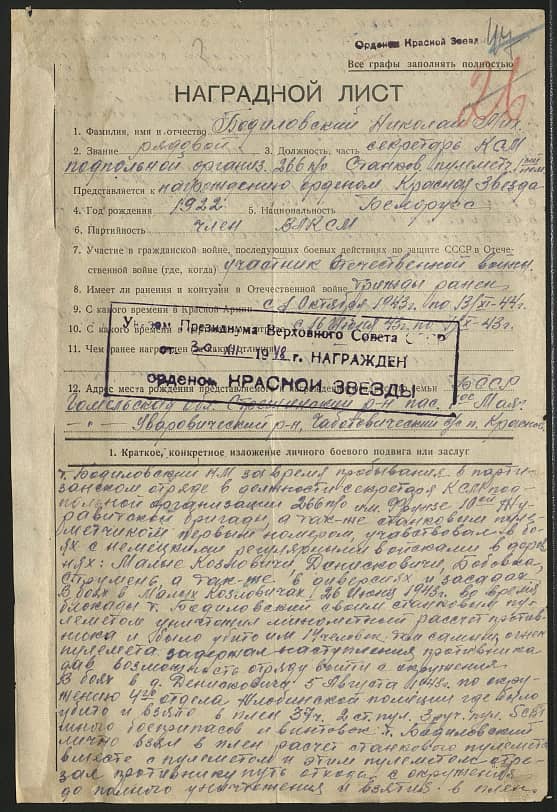 Орденом Красной Звезд
44
Все графы заполнять полностью
26
НАГРАДНОЙ ЛИСТ
1. Фамилия, имя и отчество Бодиловский Николай Мих
2. Звание рядовой 3. Должность, часть секретарь КСМ
подпольной организ. 266 п/о Станков. пулемет.
Представляется к награждению орденом Красная Звезда
4. Год рождения 1922 5. Национальность Белорус
6. Партийность член ВЛКСМ
7. Участие в гражданской войне, последующих боевых действиях по защите СССР и Отече-
ственной войне (где, когда) участник Отечественной войны
8. Имеет ли ранения и контузии в Отечественной войне дважды ранен
9. С какого времени в Красной Армии с 1 Октября 1943г. по 13/XI-44г.
10. С какого времени в
11. Чем ранее награжден
Указом Президиума Верховного Совета СССР
от 30 XII 1948 г. НАГРАЖДЕН
орденом КРАСНОЙ ЗВЕЗДЫ
12. Адрес места рождения представляемого к награждению семьи БССР
Гомельская обл. Стрешинский р-н пас. Мая.
-"- Уваровичский р-н, Чаботовический с/с п. Красное
1. Краткое, конкретное изложение личного боевого подвига или заслуг
т. Бодиловский Н.М за время пребывания в парти-
занском отряде в должности секретаря КСМ под-
польной организации 266 п/о им. Фрунзе 10ой Жу-
равитской бригады, а так-же станковым пуле-
метчиком первым номером, участвовал в бо-
ях с немецкими регулярными войсками в дерев-
нях: Малые Козловичи, Денисковичи, Бобовка,
Струмень, а так-же в диверсиях и засадах.
В боях в Малых Козловичах, 26 Июня 1943г. во время
блокады т. Бодиловский своим станковым пу-
леметом уничтожил минометный рассчет против-
ника и было убито им 14 человек. Тем самым огнем
пулемета задержал наступления противника
дав возможность отряду выйти из окружения.
В боях в д. Денисковичи 5 Августа 1943г. по окру-
жению 4го отдела Жлобинской полиции где было
убито и взято в плен 37ч. 2 ст. пул. 3 руч. пул.
много боеприпасов и винтовок т. Бодиловский
лично взял в плен расчет станкового пулемета
вместе с пулеметом и этим пулеметом отре-
зал противнику путь отхода с окружения
до полного уничтожения и взятия в плен.